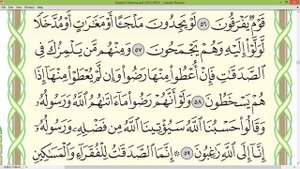 قَوْمٌ يَفْرَقُونَ ٥٦ لَوْ يَجِدُونَ مَلْجَـًٔا أَوْ مَغَـٰرَٰتٍ أَوْ مُدَّخَلًا
لَّوَلَّوْا۟ إِلَيْهِ وَهُمْ يَجْمَحُونَ ٥٧ وَمِنْهُم مَّن يَلْمِزُكَ فِى
ٱلصَّدَقَـٰتِ فَإِنْ أُعْطُوا۟ مِنْهَا رَضُوا۟ وَإِن لَّمْ يُعْطَوْا۟ مِنْهَآ إِذَا
هُمْ يَسْخَطُونَ ٥٨ وَلَوْ أَنَّهُمْ رَضُوا۟ مَآ ءَاتَىٰهُمُ ٱللَّهُ وَرَسُولُهُۥ
وَقَالُوا۟ حَسْبُنَا ٱللَّهُ سَيُؤْتِينَا ٱللَّهُ مِن فَضْلِهِۦ وَرَسُولُهُۥٓ
إِنَّآ إِلَى ٱللَّهِ رَٰغِبُونَ ٥٩ ۞ إِنَّمَا ٱلصَّدَقَـٰتُ لِلْفُقَرَآءِ وَٱلْمَسَـٰكِينِ